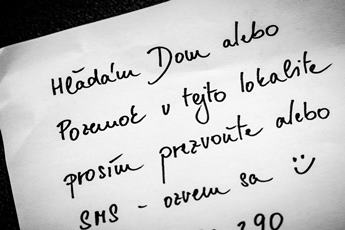 Hľadám Dom alebo
Pozemok v tejto lokalite
prosím prezvoňte alebo
SMS - ozvem sa :)
290